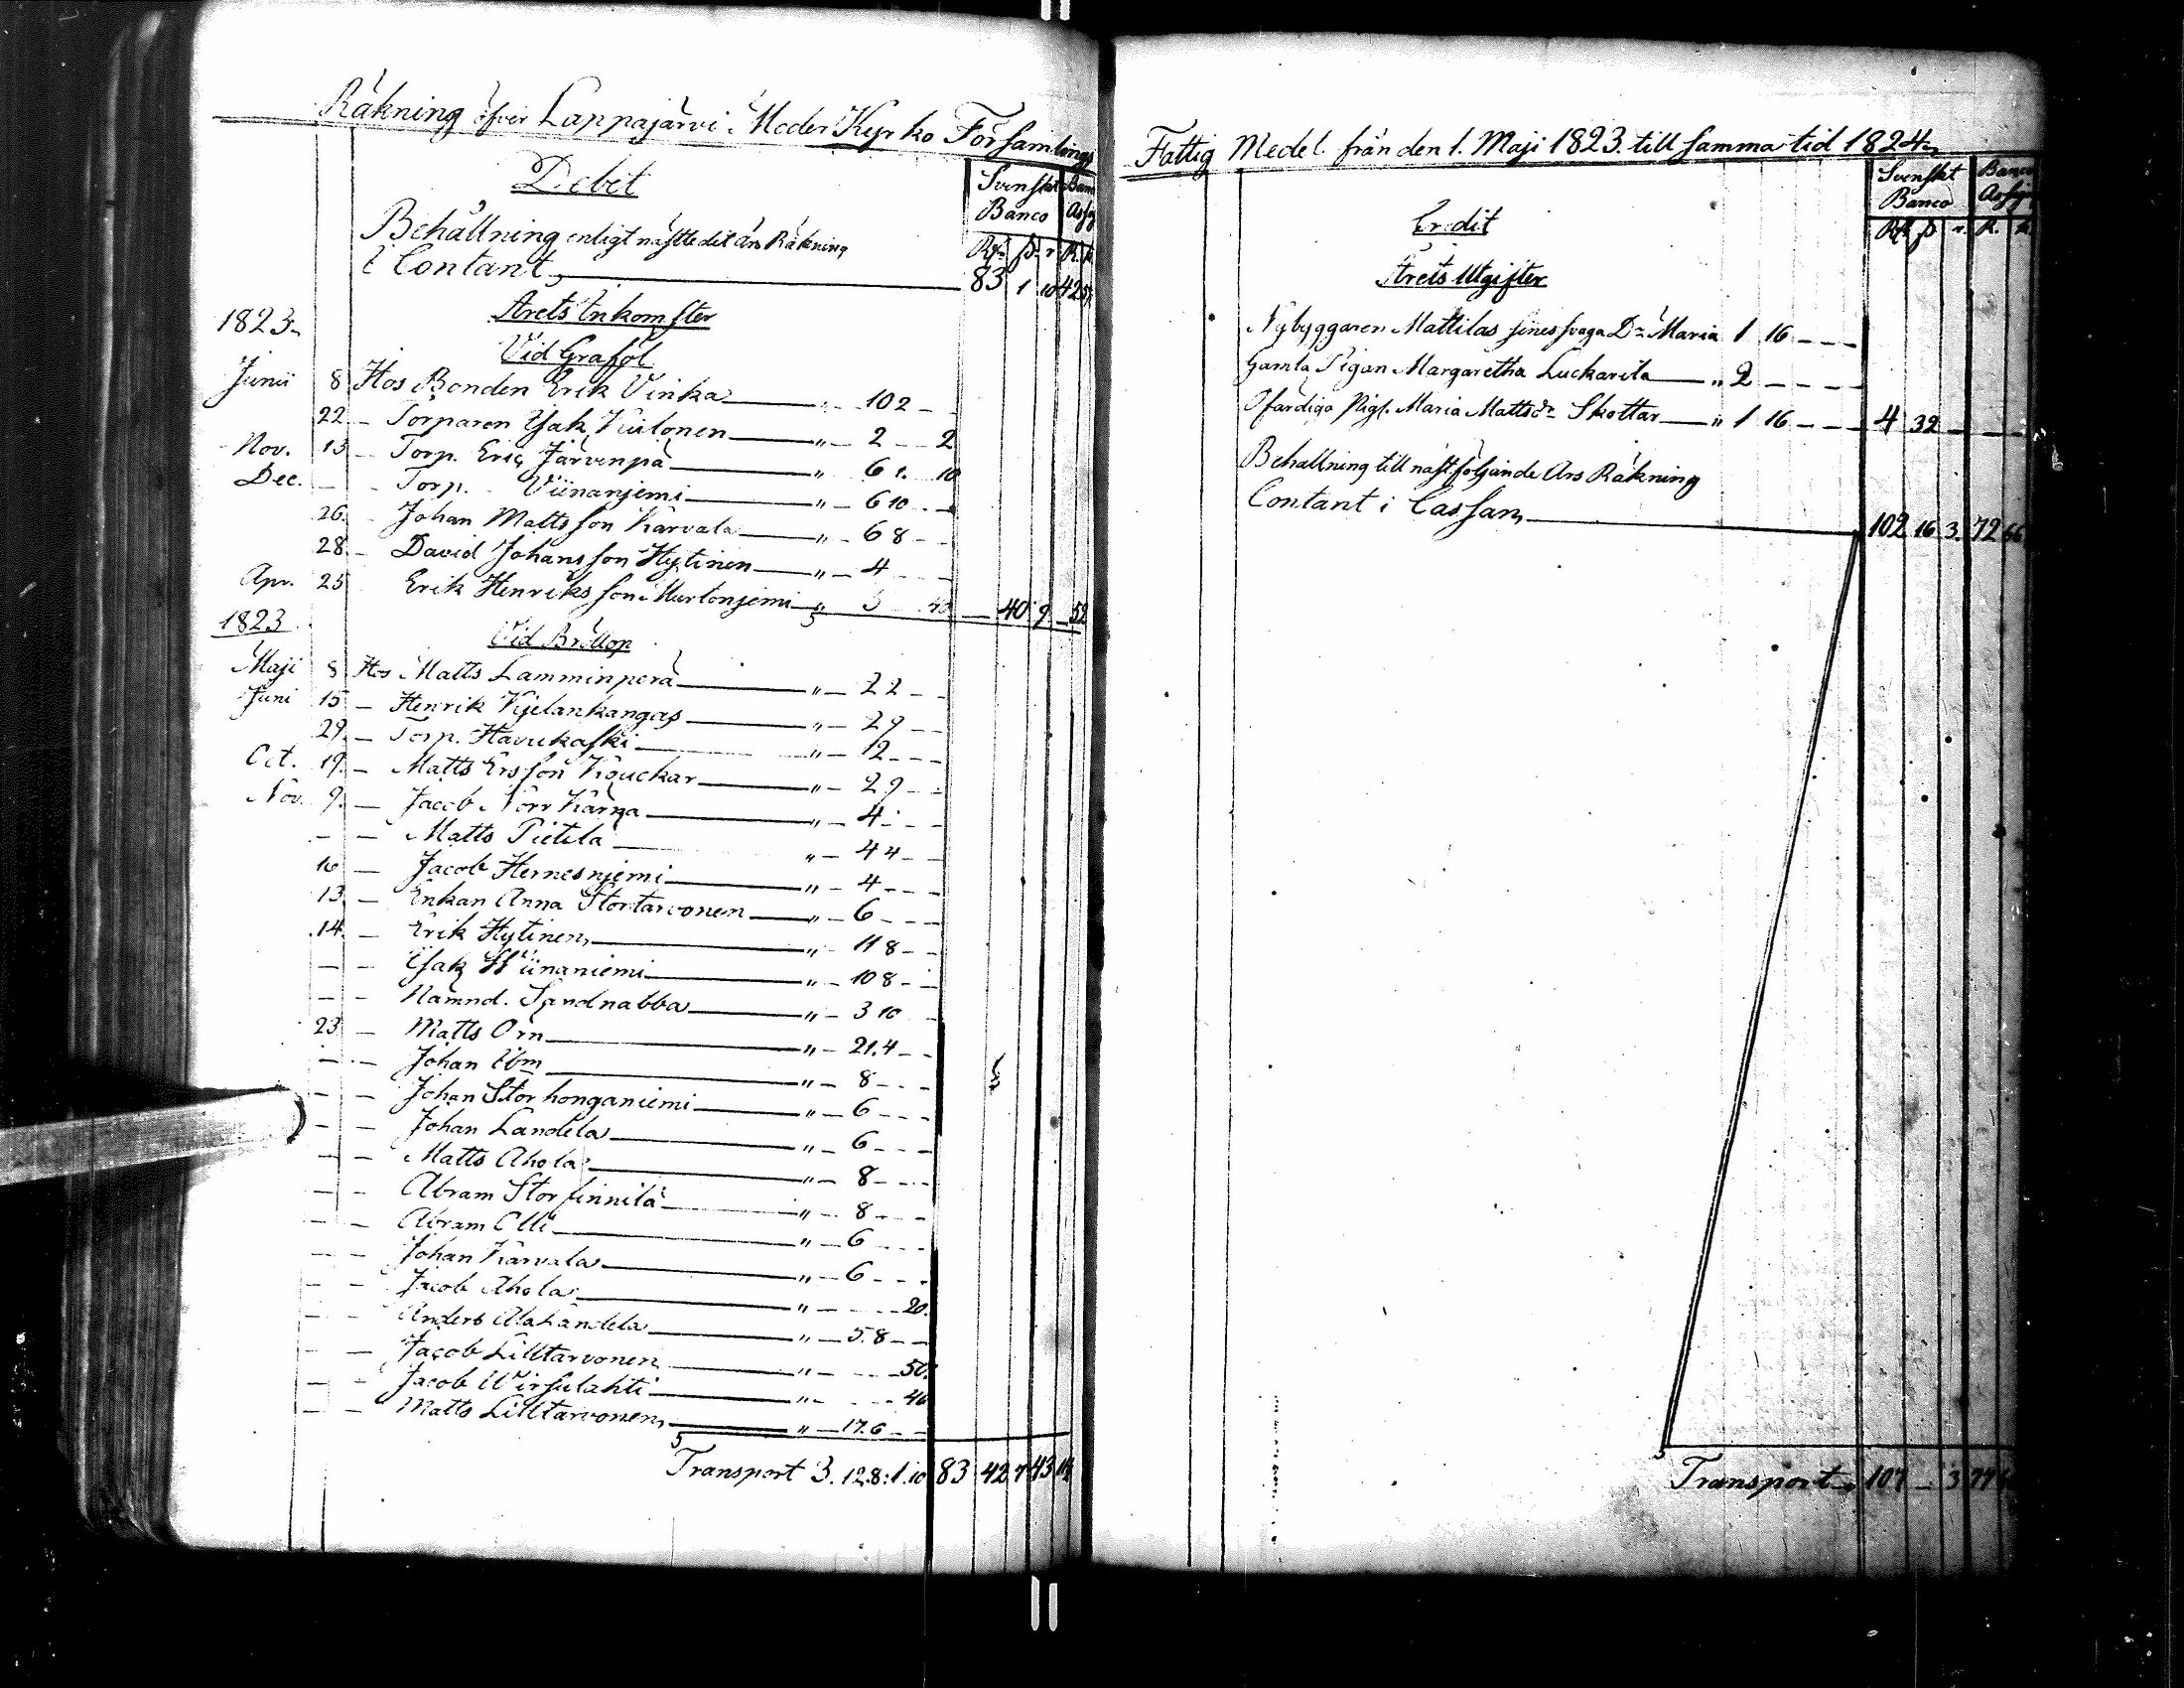 Räkning öfver Lappajärvi Moder Kyrko Församlings
Debet
Svenskt Banco
Banco Assig
Behållning enligt nästledit års Räkning
Rd. ß. r. R. k.
i Contant 83 1 10 42 5
Årets Inkomster
1823.
Vid Grafföl
Junii 8 Hos Bonden Erik Vinka " - 10 2 -
22 - Torparen Isak Kiilonen " - 2 - - 2
Nov. 13 - Torp. Eric Järvenpä " 6 1. 10
Dec. - - Torp. Viinanjemi " - 6 10 - -
26. - Johan Mattsson Karvala " - 6 8 - -
28. - David Johansson Hytinen " - 4 - - -
Apr. 25 Erik Henriksson Hurtonjemi " 5 40 - 40 9 - 52
1823.
Vid Bröllop
Maji 8 Hos Matts Lamminperä " - 2 2 - -
Juni 15 - Henrik Kijelankangas " - 2 9 - -
29. - Torp. Haukaski " - 12 - - -
Oct. 19. - Matts Ersson Kouckar " - 2 9 - -
Nov. 9. - Jacob Norr Kärna " - 4 - - -
- - Matts Pietilä " - 4 4 - -
10 - Jacob Hernesnjemi " - 4 - - -
13. - Enkan Anna Stortarvonen " - 6 - - -
14. - Erik Hytinen " - 11 8 - -
- - Isak Wiinaniemi " - 10 8 - -
- - Nämnd. Sandnabba " - 3 10
23. - Matts Örn " - 21. 4 - -
- - Johan " - 8 - - -
- - Johan Storhonganiemi " - 6 - - -
- - Johan Landela " - 6 - - -
- - Matts Ahola " - 8 - - -
- - Abram Storfinnilä " - 8 - - -
- - Abram Olli " - 6 - - -
- - Johan Karvala " - 6 - - -
- - Jacob Ahola " - - - - 20.
- - Anders Alalandela " - 5. 8 - -
- - Jacob Lilltarvonen " - - - - 50.
- - Jacob Wirsulahti " - - - - 40
- - Matts Lilltarvonen " - 17. 6 - -
Transport 3. 12. 8: 1. 10 83 42 7 43 14
Fattig Medel. från den 1. Maji 1823. till samma tid 1824.
Credit
Svenskt Banco
Banco Assig
Rd. ß. r. R. k.
Årets Utgifter
Nybyggaren Mattilas sinessvaga Dr Maria 1 16 - - -
Gamla Pigan Margaretha Luckarila " 2 - - - -
Ofärdiga Pig. Maria Mattsdr Skottar " 1 16 - - - 4 32 - - -
Behållning till nästföljande Års Räkning
Contant i Cassan 102 16 3. 72 66
Transport 107 - 3 77